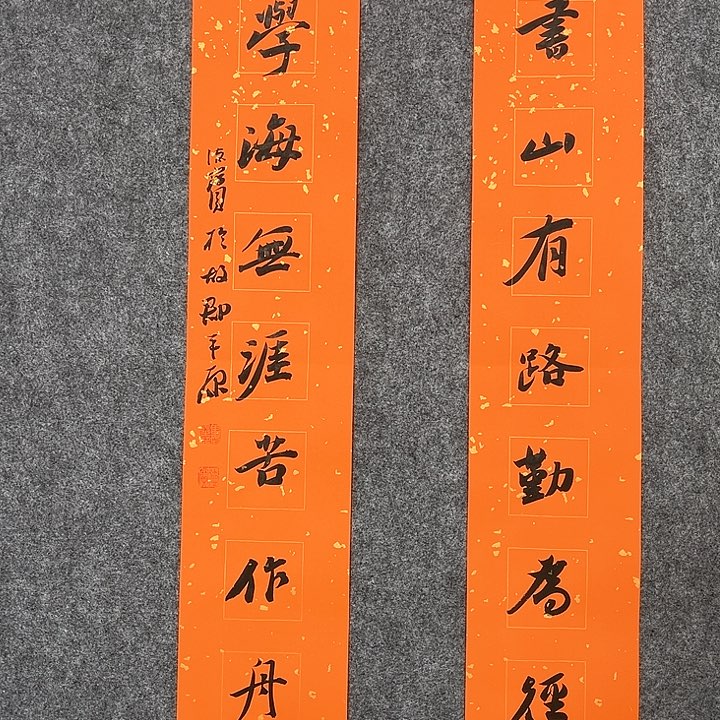 書山有路勤為徑
學海無涯苦作舟
於故郡平原